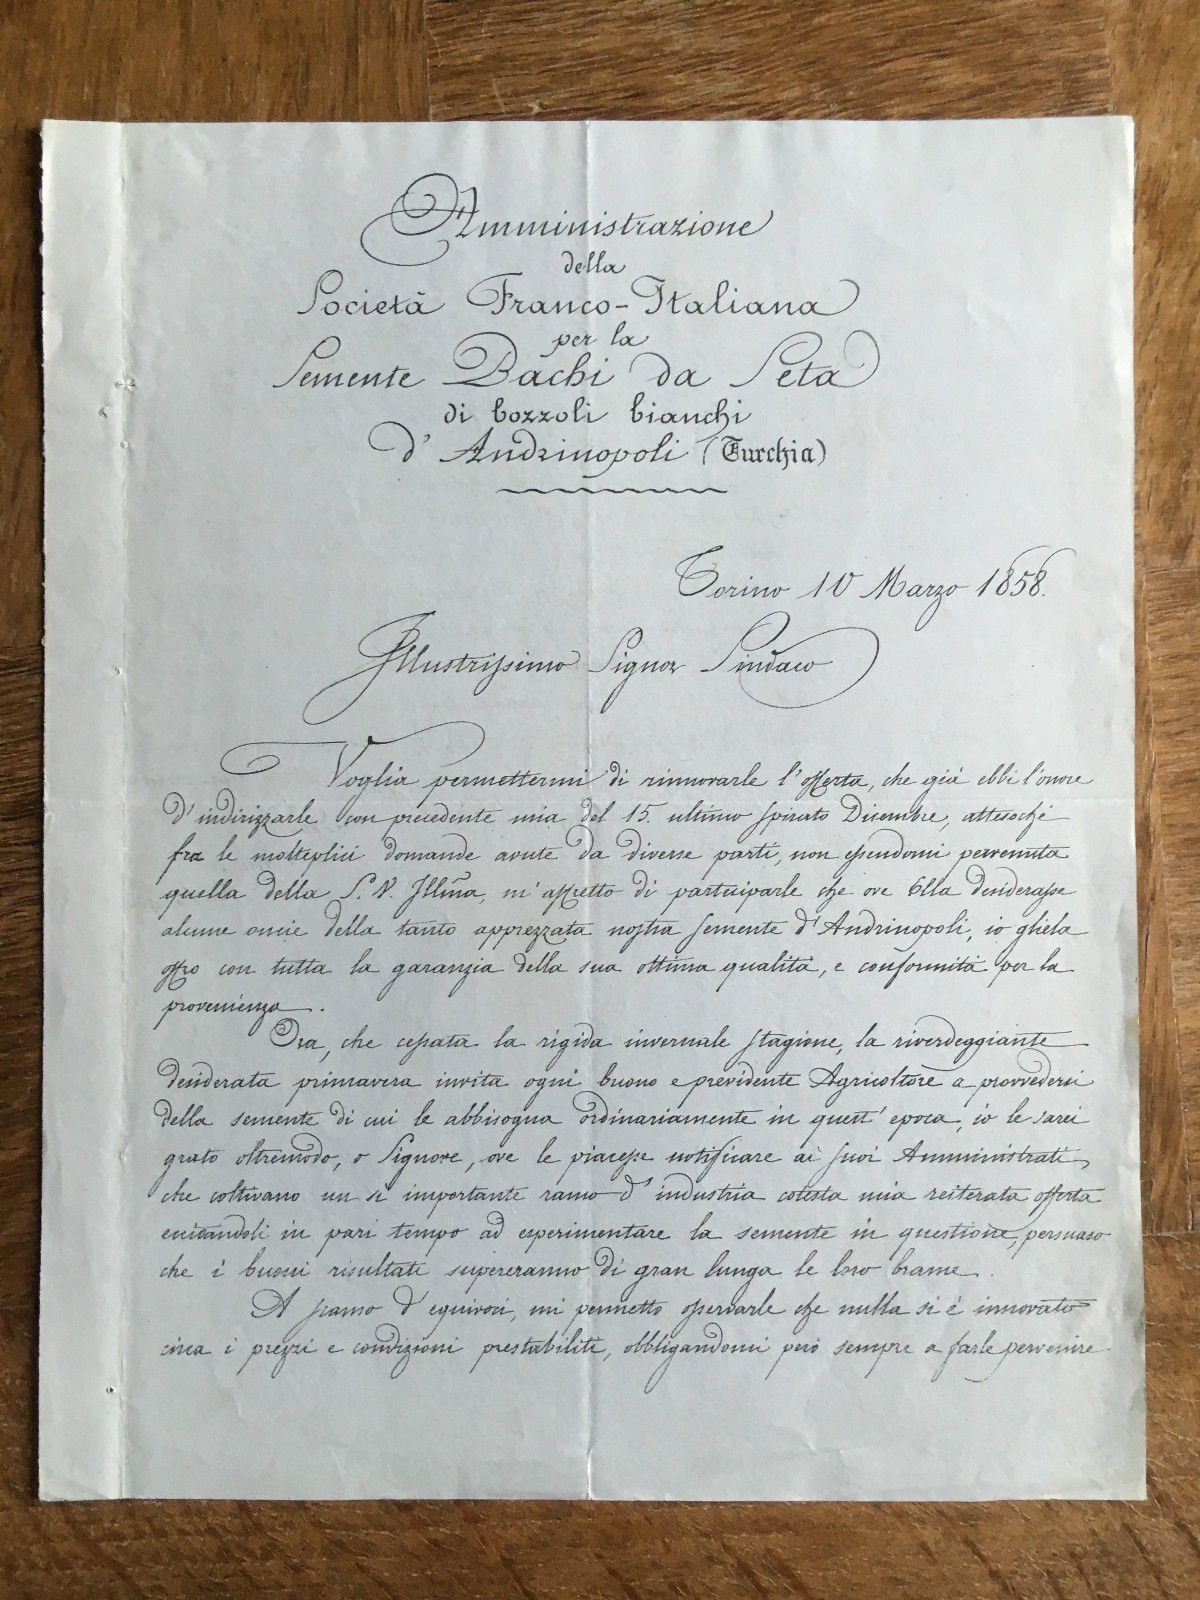 Amministrazione
della
Società Franco-Italiana
per la
Semente Bachi da Seta
di bozzoli bianchi
d'Andrinopoli (Turchia)
Torino 10 Marzo 1858.
Illustrissimo Signor Sindaco
Voglia permettermi di rinnovarle l'offerta, che già ebbi l'onore
d'indirizzarle con precedente mia del 15. ultimo spirato Dicembre, attesochè
fra le molteplici domande avute da diverse parti, non essendomi pervenuta
quella della S. V. Illma, m'affretto di parteciparle che ove Ella desiderasse
alcune oncie della tanto apprezzata nostra semente d'Andrinopoli, io gliela
offro con tutta la garanzia della sua ottima qualità, e conformità per la
provenienza.
Ora, che cessata la rigida invernale stagione, la riverdeggiante
desiderata primavera invita ogni buono e previdente Agricoltore a provvedersi
della semente di cui le abbisogna ordinariamente in quest'epoca, io le sarei
grato oltremodo, o Signore, ove le piacesse notificare ai suoi Amministrati,
che coltivano un sì importante ramo d'industria cotesta mia reiterata offerta
eccitandoli in pari tempo ad esperimentare la semente in questione, persuaso
che i buoni risultati supereranno di gran lunga le loro brame.
A scanso d'equivoci, mi permetto osservarle che nulla si è innovato
circa i prezzi e condizioni prestabiliti, obbligandomi però sempre a farle pervenire